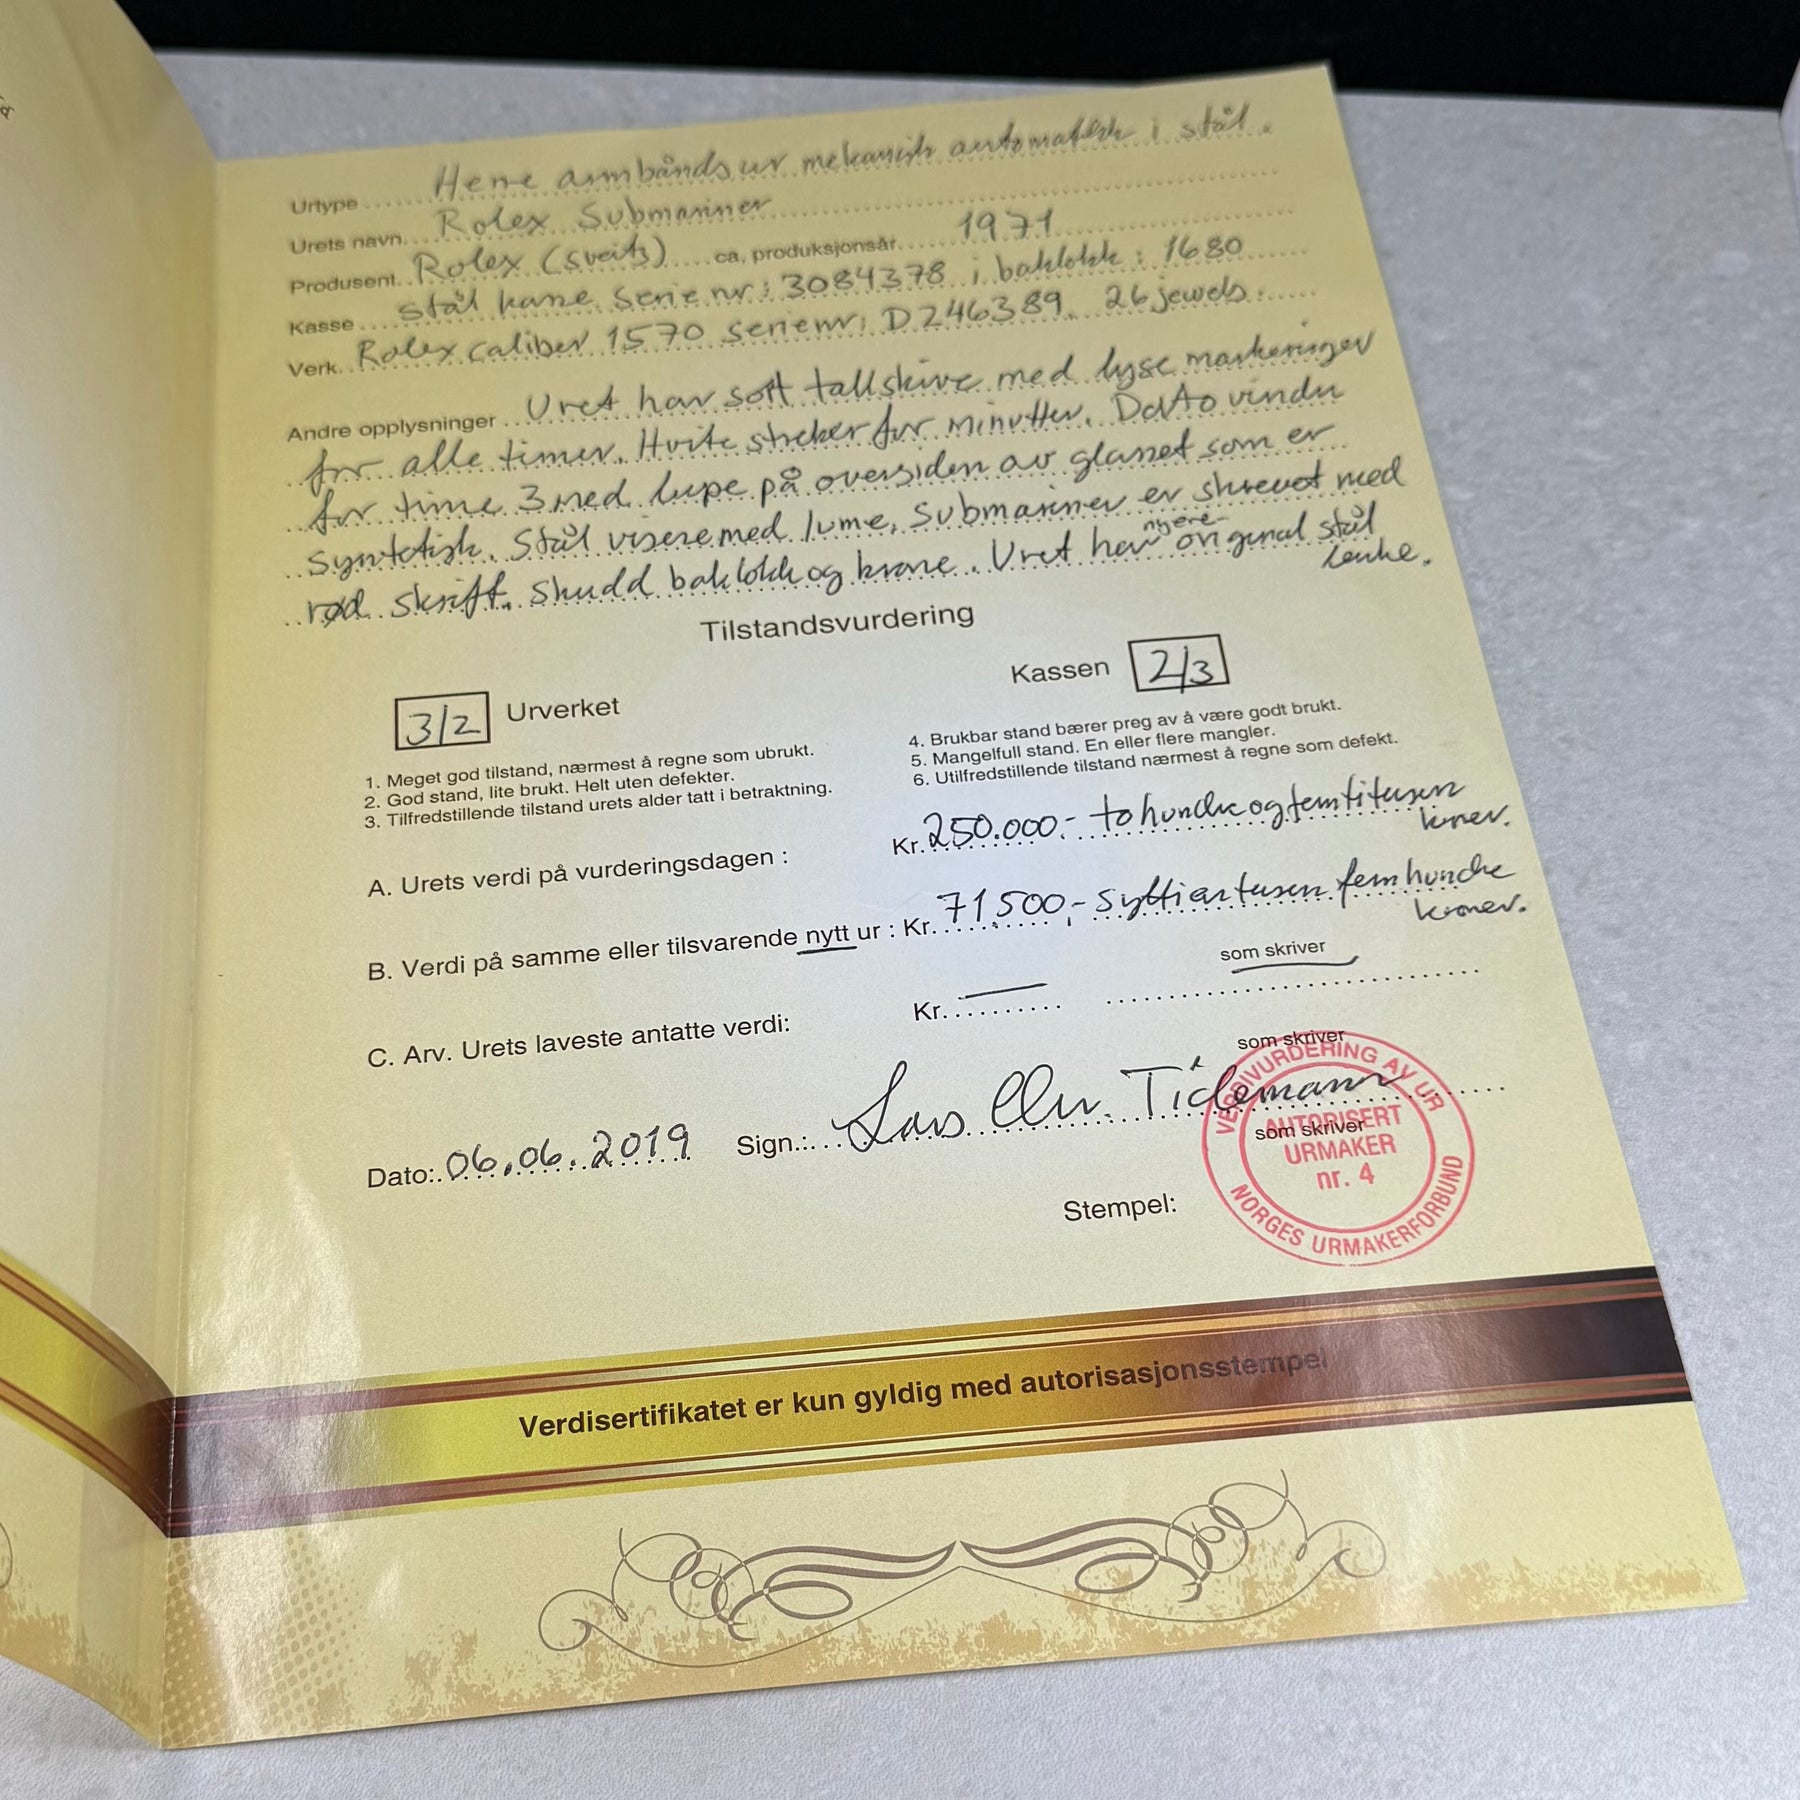 Urtype Herre armbåndsur mekanisk automatisk i stål.
Urets navn Rolex Submariner
Produsent Rolex (sveits) ca, produksjonsår 1971
Kasse stål kasse. Serie nr: 3084378 i baklokk: 1680
Verk Rolex caliber 1570 serienr: D246389. 26 jewels.
Andre opplysninger Uret har sort tallskive med lyse markeringer
for alle timer. Hvite streker for minutter. Dato vindu
for time 3 med lupe på oversiden av glasset som er
syntetisk. Stål visere med lume. Submariner er skrevet med
rød skrift. Skudd baklokk og krone. Uret har nyere original stål
lenke.
Tilstandsvurdering
3/2 Urverket
Kassen 2/3
1. Meget god tilstand, nærmest å regne som ubrukt.
2. God stand, lite brukt. Helt uten defekter.
3. Tilfredstillende tilstand urets alder tatt i betraktning.
4. Brukbar stand bærer preg av å være godt brukt.
5. Mangelfull stand. En eller flere mangler.
6. Utilfredstillende tilstand nærmest å regne som defekt.
A. Urets verdi på vurderingsdagen : Kr. 250.000.- to hundre og femti tusen
kroner.
B. Verdi på samme eller tilsvarende nytt ur : Kr. 71.500,- syttien tusen fem hundre
kroner.
som skriver
C. Arv. Urets laveste antatte verdi: Kr. —
som skriver
Dato: 06.06.2019 Sign.: Lars Chr. Tidemann
som skriver
Stempel:
VERDIVURDERING AV UR
AUTORISERT
URMAKER
nr. 4
NORGES URMAKERFORBUND
Verdisertifikatet er kun gyldig med autorisasjonsstempel